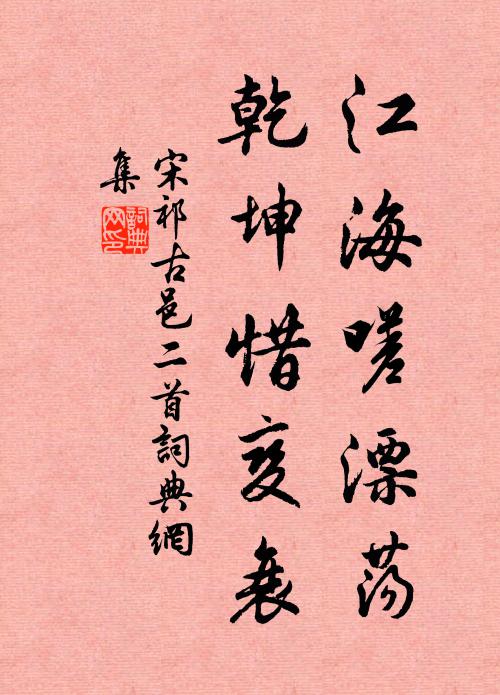 江海嗟漂荡
乾坤惜变衰
宋祁古邑二首詞典網
集
詞典网印